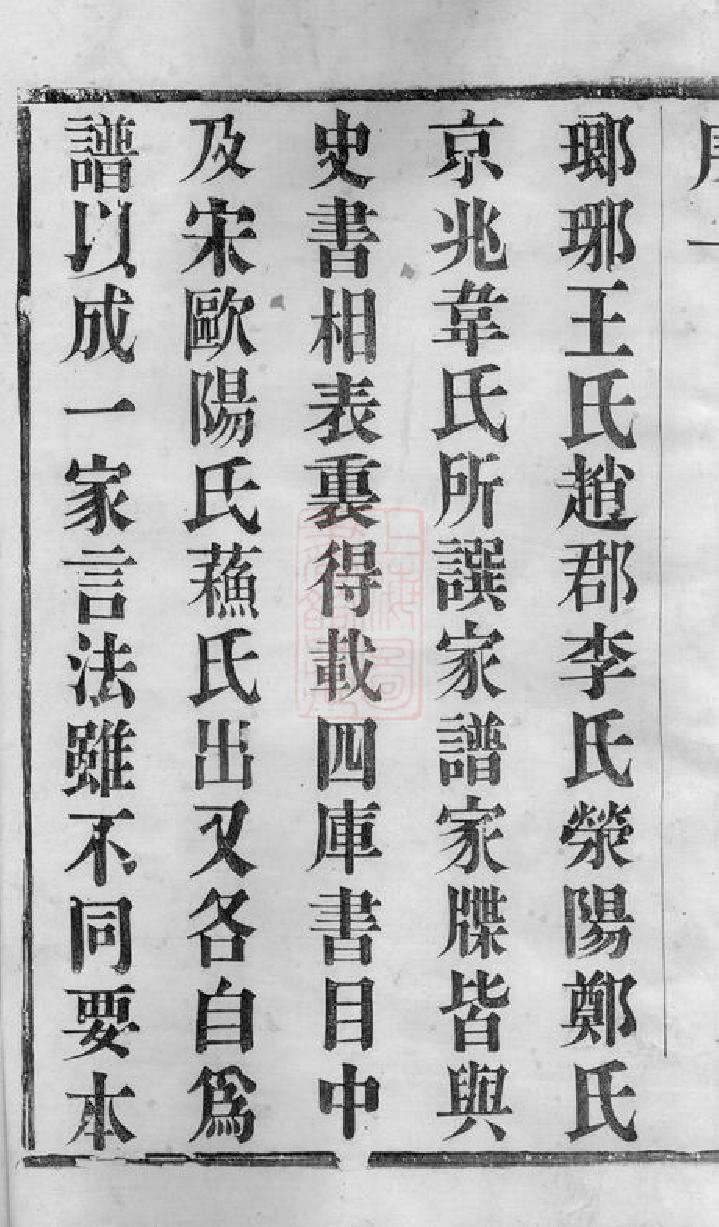 瑯琊王氏趙郡李氏滎陽鄭氏
京兆韋氏所譔家譜家牒皆與
史書相表裏得載四庫書目中
及宋歐陽氏蘓氏出又各自爲
譜以成一家言法雖不同要本